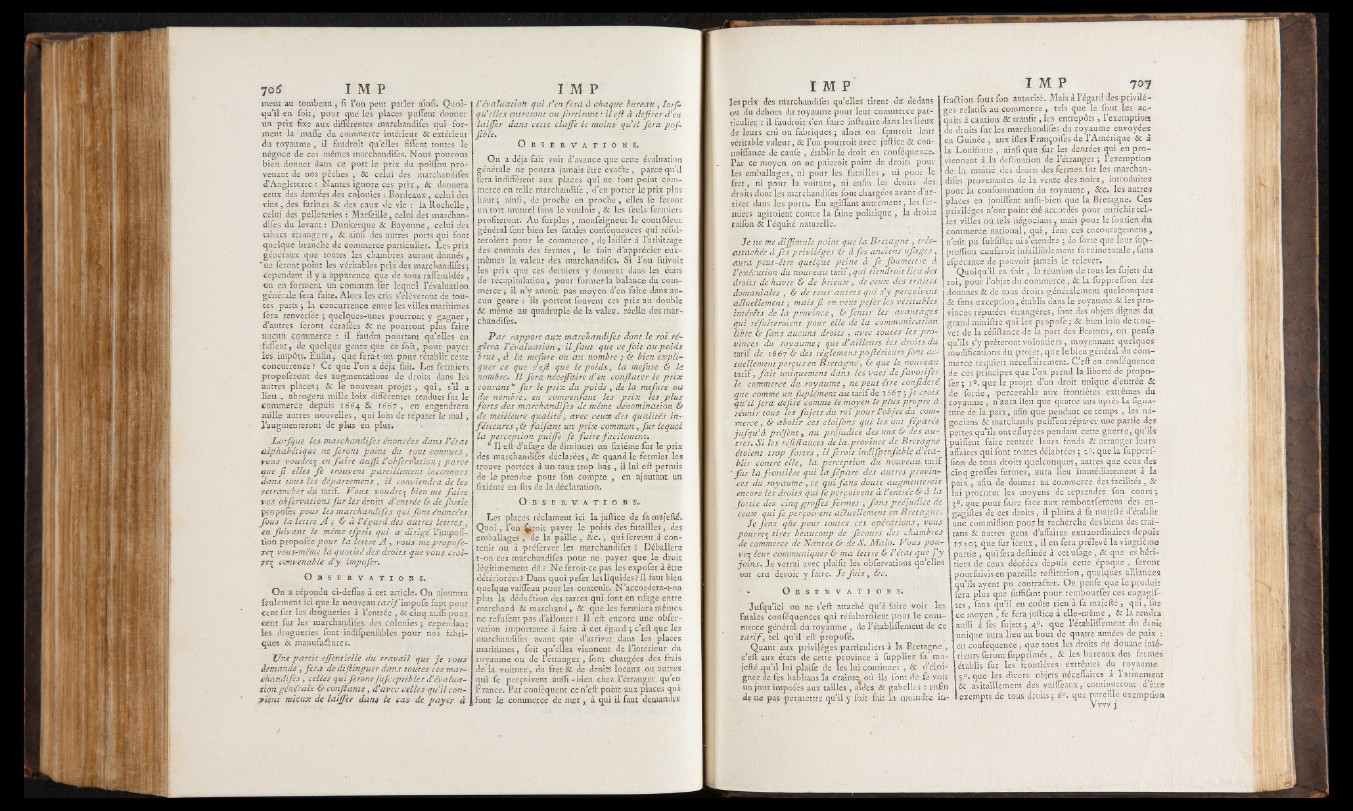 706 I M P I M P
ment au tombeau, ſi l'on peut parler ainſi. Quoi-
qu'il en ſoit, pour que les places puſſent donner
un prix fixe aux différentes marchandiſes qui for-
ment la maſſe du commerce intérieur & extérieur
du royaume, il faudroit qu'elles fiſſent toutes le
négoce de ces mêmes marchandiſes. Nous pouvons
bien donner dans ce port le prix du poiſſon pro-
venant de nos pêches, & celui des marchandiſes
d'Angleterre : Nantes ignore ces prix, & donnera
ceux des denrées des colonies : Bordeaux, celui des
vins, des farines & des eaux de vie : la Rochelle,
celui des pelleteries : Marſeille, celui des marchan-
diſes du levant : Dunkerque & Bayonne, celui des
tabacs étrangers, & ainſi des autres ports qui font
quelque branche de commerce particulier. Les prix
généraux que toutes les chambres auront donnés,
ne ſeront point les véritables prix des marchandiſes;
cependant il y a apparence que de tous raſſemblés,
on en formera un commun ſur lequel l'évaluation
générale ſera faite. Alors les cris s'éleveront de tou-
tes parts ; la concurrence entre les villes maritimes
ſera renverſée ; quelques-unes pourront y gagner,
d'autres ſeront écraſées & ne pourront plus faire
aucun commerce : il faudra pourtant qu'elles en
faſſent, de quelque genre que ce ſoit, pour payer
les impôts. Enfin, que fera-t-on pour rétablir cette
concurrence ? Ce que l'on a déja fait. Les fermiers
propoſeront des augmentations de droits dans les
autres places ; & le nouveau projet, qui, s'il a
lieu, abrogera mille loix différentes rendues ſur le
commerce depuis 1664 & 1667, en engendrera
mille autres nouvelles, qui loin de réparer le mal,
l'augmenteront de plus en plus.
Lorſque les marchandiſes énoncées dans l'état
alphabétique ne ſeront point du tout connues,
vous voudrez en faire auſſi l'obſervation ; parce
que ſi elles ſe trouvent pareillement inconnues
dans tous les départemens, il conviendra de les
retrancher du tarif. Vous voudrez bien me faire
vos obſervations ſur les droits d'entrée & de ſortie
propoſés pour les marchandiſes qui ſont énoncées
ſous la lettre A ; & à l'égard des autres lettres,
en ſuivant le même eſprit qui a dirigé l'impoſi-
tion propoſée pour la lettre A, vous me propoſe-
rez vous-même la quotité des droits que vous croi-
rez convenable d'y impoſer.
OBSERVATIONS.
On a répondu ci-deſſus à cet article. On ajoutera
ſeulement ici que le nouveau tarif impoſe ſept pour
cent ſur les drogueries à l'entrée, & cinq auſſi pour
cent ſur les marchandiſes des colonies ; cependant
les drogueries ſont indiſpenſables pour nos fabri-
ques & manufactures.
Une partie eſſentielle du travail que je vous
demande, ſera de diſtinguer dans toutes ces mar-
chandiſes, celles qui ſeront ſuſceptibles d'évalua-
tion générale & conſtante, d'avec celles qu'il con-
vient mieux de laiſſer dans le cas de payer à
l'évaluation qui s'en fera à chaque bureau, lorſ-
qu'elles entreront ou ſortiront : il eſt à deſirer d'en
laiſſer dans cette claſſe le moins qu'il ſera poſ-
ſible.
OBSERVATIONS.
On a déja fait voir d'avance que cette évaluation
générale ne pourra jamais être exacte, parce qu'il
ſera indifférent aux places qui ne font point com-
merce en telle marchandiſe, d'en porter le prix plus
haut ; ainſi, de proche en proche, elles ſe feront
un tort mutuel ſans le vouloir, & les ſeuls fermiers
profiteront. Au ſurplus, monſeigneur le contrôleur
général ſent bien les fatales conſéquences qui réſul-
teroient pour le commerce, de laiſſer à l'arbitrage
des commis des fermes, le ſoin d'apprécier eux-
mêmes la valeur des marchandiſes. Si l'on ſuivoit
les prix que ces derniers y donnent dans les états
de récapitulation, pour former la balance du com-
merce, il n'y auroit pas moyen d'en faire dans au-
cun genre : ils portent ſouvent ces prix au double
& même au quadruple de la valeur réelle des mar-
chandiſes.
Par rapport aux marchandiſes dont le roi ré-
glera l'évaluation, il faut que ce ſoit au poids
brut, à la meſure ou au nombre ; & bien expli-
quer ce que c'eſt que le poids, la meſure & le
nombre. Il ſera néceſſaire d'en conſtater le prix
courant* ſur le prix du poids, de la meſure ou
du nombre, en compenſant les prix les plus
forts des marchandiſes de même dénomination &
de meilleure qualité, avec ceux des qualités in-
férieures, & faiſant un prix commun, ſur lequel
la perception puiſſe ſe faire facilement.
* Il eſt d'uſage de diminuer un ſixième ſur le prix
des marchandiſes déclarées, & quand le fermier les
trouve portées à un taux trop bas, il lui eſt permis
de le prendre pour ſon compte, en ajoutant un
ſixième en ſus de la déclaration.
OBSERVATIONS.
Les places réclament ici la juſtice de ſa majeſté.
Quoi, l'on feroit payer le poids des futailles, des
emballages, de la paille, &c., qui ſervent à con-
tenir ou à préſerver les marchandiſes ! Déballera
t-on ces marchandiſes pour ne payer que le droit
légitimement dû ? Ne ſeroit-ce pas les expoſer à être
détériorées ? Dans quoi peſer les liquides ? il faut bien
quelque vaiſſeau pour les contenir. N'accordera-t-on
plus la déduction des tarres qui ſont en uſage entre
marchand & marchand, & que les fermiers mêmes
ne refuſent pas d'allouer ? Il eſt encore une obſer-
vation importante à faire à cet égard ; c'eſt que les
marchandiſes avant que d'arriver dans les places
maritimes, ſoit qu'elles viennent de l'intérieur du
royaume ou de l'étranger, ſont chargées des frais
de la voiture, du fret & de droits locaux ou autres
qui ſe perçoivent auſſi-bien chez l'étranger qu'en
France. Par conſéquent ce n'eſt point aux places qui
font le commerce de mer, à qui il faut demander
I M P I M P 707
les prix des marchandiſes qu'elles tirent du dedans
ou du dehors du royaume pour leur commerce par-
ticulier : il faudroit s'en faire inſtruire dans les lieux
de leurs crû ou fabriques ; alors on ſçauroit leur
véritable valeur, & l'on pourroit avec juſtice & con-
noiſſance de cauſe, établir le droit en conſéquence.
Par ce moyen on ne paieroit point de droits pour
les emballages, ni pour les futailles, ni pour le
fret, ni pour la voiture, ni enfin les droits des
droits dont les marchandiſes ſont chargées avant d'ar-
river dans les ports. En agiſſant autrement, les fer-
miers agiroient contre la ſaine politique, la droite
raiſon & l'équité naturelle.
Je ne me diſſimule point que la Bretagne, très-
attachée à ſes privilèges & à ſes anciens uſages,
aura peut-être quelque peine à ſe ſoumettre à
l'exécution du nouveau tarif, qui tiendroit lieu des
droits de havre & de brieux, de ceux des traites
domaniales, & de tous autres qui s'y perçoivent
actuellement ; mais ſi on veut peſer les véritables
intérêts de la province, & ſentir les avantages
qui réſulteront pour elle de la communication
libre & ſans aucuns droits, avec toutes les pro-
vinces du royaume ; que d'ailleurs les droits du
tarif de 1667 & des réglemens poſtérieurs ſont ac-
tuellement perçus en Bretagne, & que le nouveau
tarif, fait uniquement dans les vues de favoriſer
le commerce du royaume, ne peut être conſidéré
que comme un ſupplément au tarif de 1667 ; je crois
qu'il ſera deſiré comme le moyen le plus propre à
réunir tous les ſujets du roi pour l'objet du com-
merce, & abolir ces cloiſons qui les ont ſéparés
juſqu'à préſent, au préjudice des uns & des au-
tres. Si les réſiſtances de la province de Bretagne
étoient trop fortes, il ſeroit indiſpenſable d'éta-
blir contre elle, la perception du nouveau tarif
ſur la frontière qui la ſépare des autres provin-
ces du royaume, ce qui ſans doute augmenteroit
encore les droits qui ſe perçoivent à l'entrée & à la
ſortie des cinq groſſes fermes, ſans préjudice de
ceux qui ſe perçoivent actuellement en Bretagne.
Je ſens que pour toutes ces opérations, vous
pourrez tirer beaucoup de ſecours des chambres
de commerce de Nantes & de S. Malo. Vous pou-
vez leur communiquer & ma lettre & l'état que j'y
joins. Je verrai avec plaiſir les obſervations qu'elles
ont cru devoir y faire. Je ſuis, &c.
OBSERVATIONS.
Juſqu'ici on ne s'eſt attaché qu'à faire voir les
fatales conſéquences qui réſulteroient pour le com-
merce général du royaume, de l'établiſſement de ce
tarif, tel qu'il eſt propoſé.
Quant aux privilèges particuliers à la Bretagne,
c'eſt aux états de cette province à ſupplier ſa ma-
jeſté qu'il lui plaiſe de les lui continuer, & d'éloi-
gner de ſes habitans la crainte où ils ſont de ſe voir
un jour impoſés aux tailles, aides & gabelles : enfin
de ne pas permettre qu'il y ſoit fait la moindre in-
fraction ſous ſon autorité. Mais à l'égard des privilé-
ges relatifs au commerce, tels que le ſont les ac-
quits à caution & tranſit, les entrepôts, l'exemption
de droits ſur les marchandiſes du royaume envoyées
en Guinée, aux iſles Françoiſes de l'Amérique & à
la Louiſiane, ainſi que ſur les denrées qui en pro-
viennent à la deſtination de l'étranger ; l'exemption
de la moitié des droits des fermes ſur les marchan-
diſes provenantes de la vente des noirs, introduites
pour la conſommation du royaume, &c. les autres
places en jouiſſent auſſi-bien que la Bretagne. Ces
privilèges n'ont point été accordés pour enrichir tel-
les villes ou tels négocians, mais pour le ſoutien du
commerce national, qui, ſans ces encouragemens,
n'eût pu ſubſiſter ni s'étendre ; de ſorte que leur ſup-
preſſion cauſeroit infailliblement ſa ruine totale, ſans
eſpérance de pouvoir jamais le relever.
Quoiqu'il en ſoit, la réunion de tous les ſujets du
roi, pour l'objet du commerce, & la ſuppreſſion des
douanes & de tous droits généralement quelconques
& ſans exception, établis dans le royaume & les pro-
vinces réputées étrangères, ſont des objets dignes du
grand miniſtre qui les propoſe ; & bien loin de trou-
ver de la réſiſtance de la part des Bretons, on penſe
qu'ils s'y prêteront volontiers, moyennant quelques
modifications du projet, que le bien général du com-
merce requiert néceſſairement. C'eſt en conſéquence
de ces principes que l'on prend la liberté de propo-
ſer ; 1°. que le projet d'un droit unique d'entrée &
de ſortie, percevable aux frontières extrêmes du
royaume, n'aura lieu que quatre ans après la ſigna-
ture de la paix, afin que pendant ce temps, les né-
gocians & marchands puiſſent réparer une partie des
pertes qu'ils ont eſſuyées pendant cette guerre, qu'ils
puiſſent faire rentrer leurs fonds & arranger leurs
affaires qui ſont toutes délabrées ; 2°. que la ſuppreſ-
ſion de tous droits quelconques, autres que ceux des
cinq groſſes fermes, aura lieu immédiatement à la
paix, afin de donner au commerce des facilités, &
lui procurer les moyens de reprendre ſon cours ;
3°. que pour faire face aux rembourſemens des en-
gagiſtes de ces droits, il plaira à ſa majeſté d'établir
une commiſſion pour la recherche des biens des trai-
tans & autres gens d'affaires extraordinaires depuis
1720 ; que ſur iceux, il en ſera prélevé la vingtième
partie, qui ſera deſtinée à cet uſage, & que es héri-
tiers de ceux décédés depuis cette époque, ſeront
pourſuivis en pareille reſtitution, quelques alliances
qu'ils ayent pu contracter. On penſe que le produit
ſera plus que ſuffiſant pour rembourſer ces engagiſ-
tes, ſans qu'il en coûte rien à ſa majeſté, qui, ſur
ce moyen, ſe fera juſtice à elle-même, & la rendra
auſſi à ſes ſujets ; 4°. que l'établiſſement du droit
unique aura lieu au bout de quatre années de paix :
en conſéquence, que tous les droits de douane inté-
rieurs ſeront ſupprimés, & les bureaux des fermes
établis ſur les frontières extrêmes du royaume
5°. que les divers objets néceſſaires à l'armement
& avitaillement des vaiſſeaux, continueront d'être
exempts de tous droits ; 6°. que pareille exemption
Vvvv j